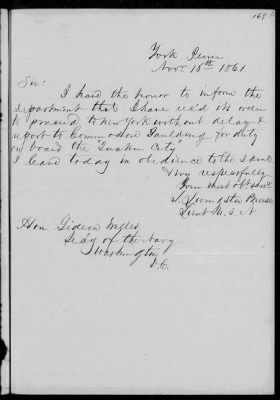 169
York Penn
Nov. 18th 1861
Sir:
I have the honor to inform the
Department that I have rec'd its order
to proceed to New York without delay &
report to Commodore Paulding for duty
on board the "Quaker City"
I leave today in obedience to the same
Very respectfully
Your most obt Servt
S. Livingston Breese
Lieut U. S. N
Hon Gideon Welles
Sec'y of the Navy
Washington
D.C.